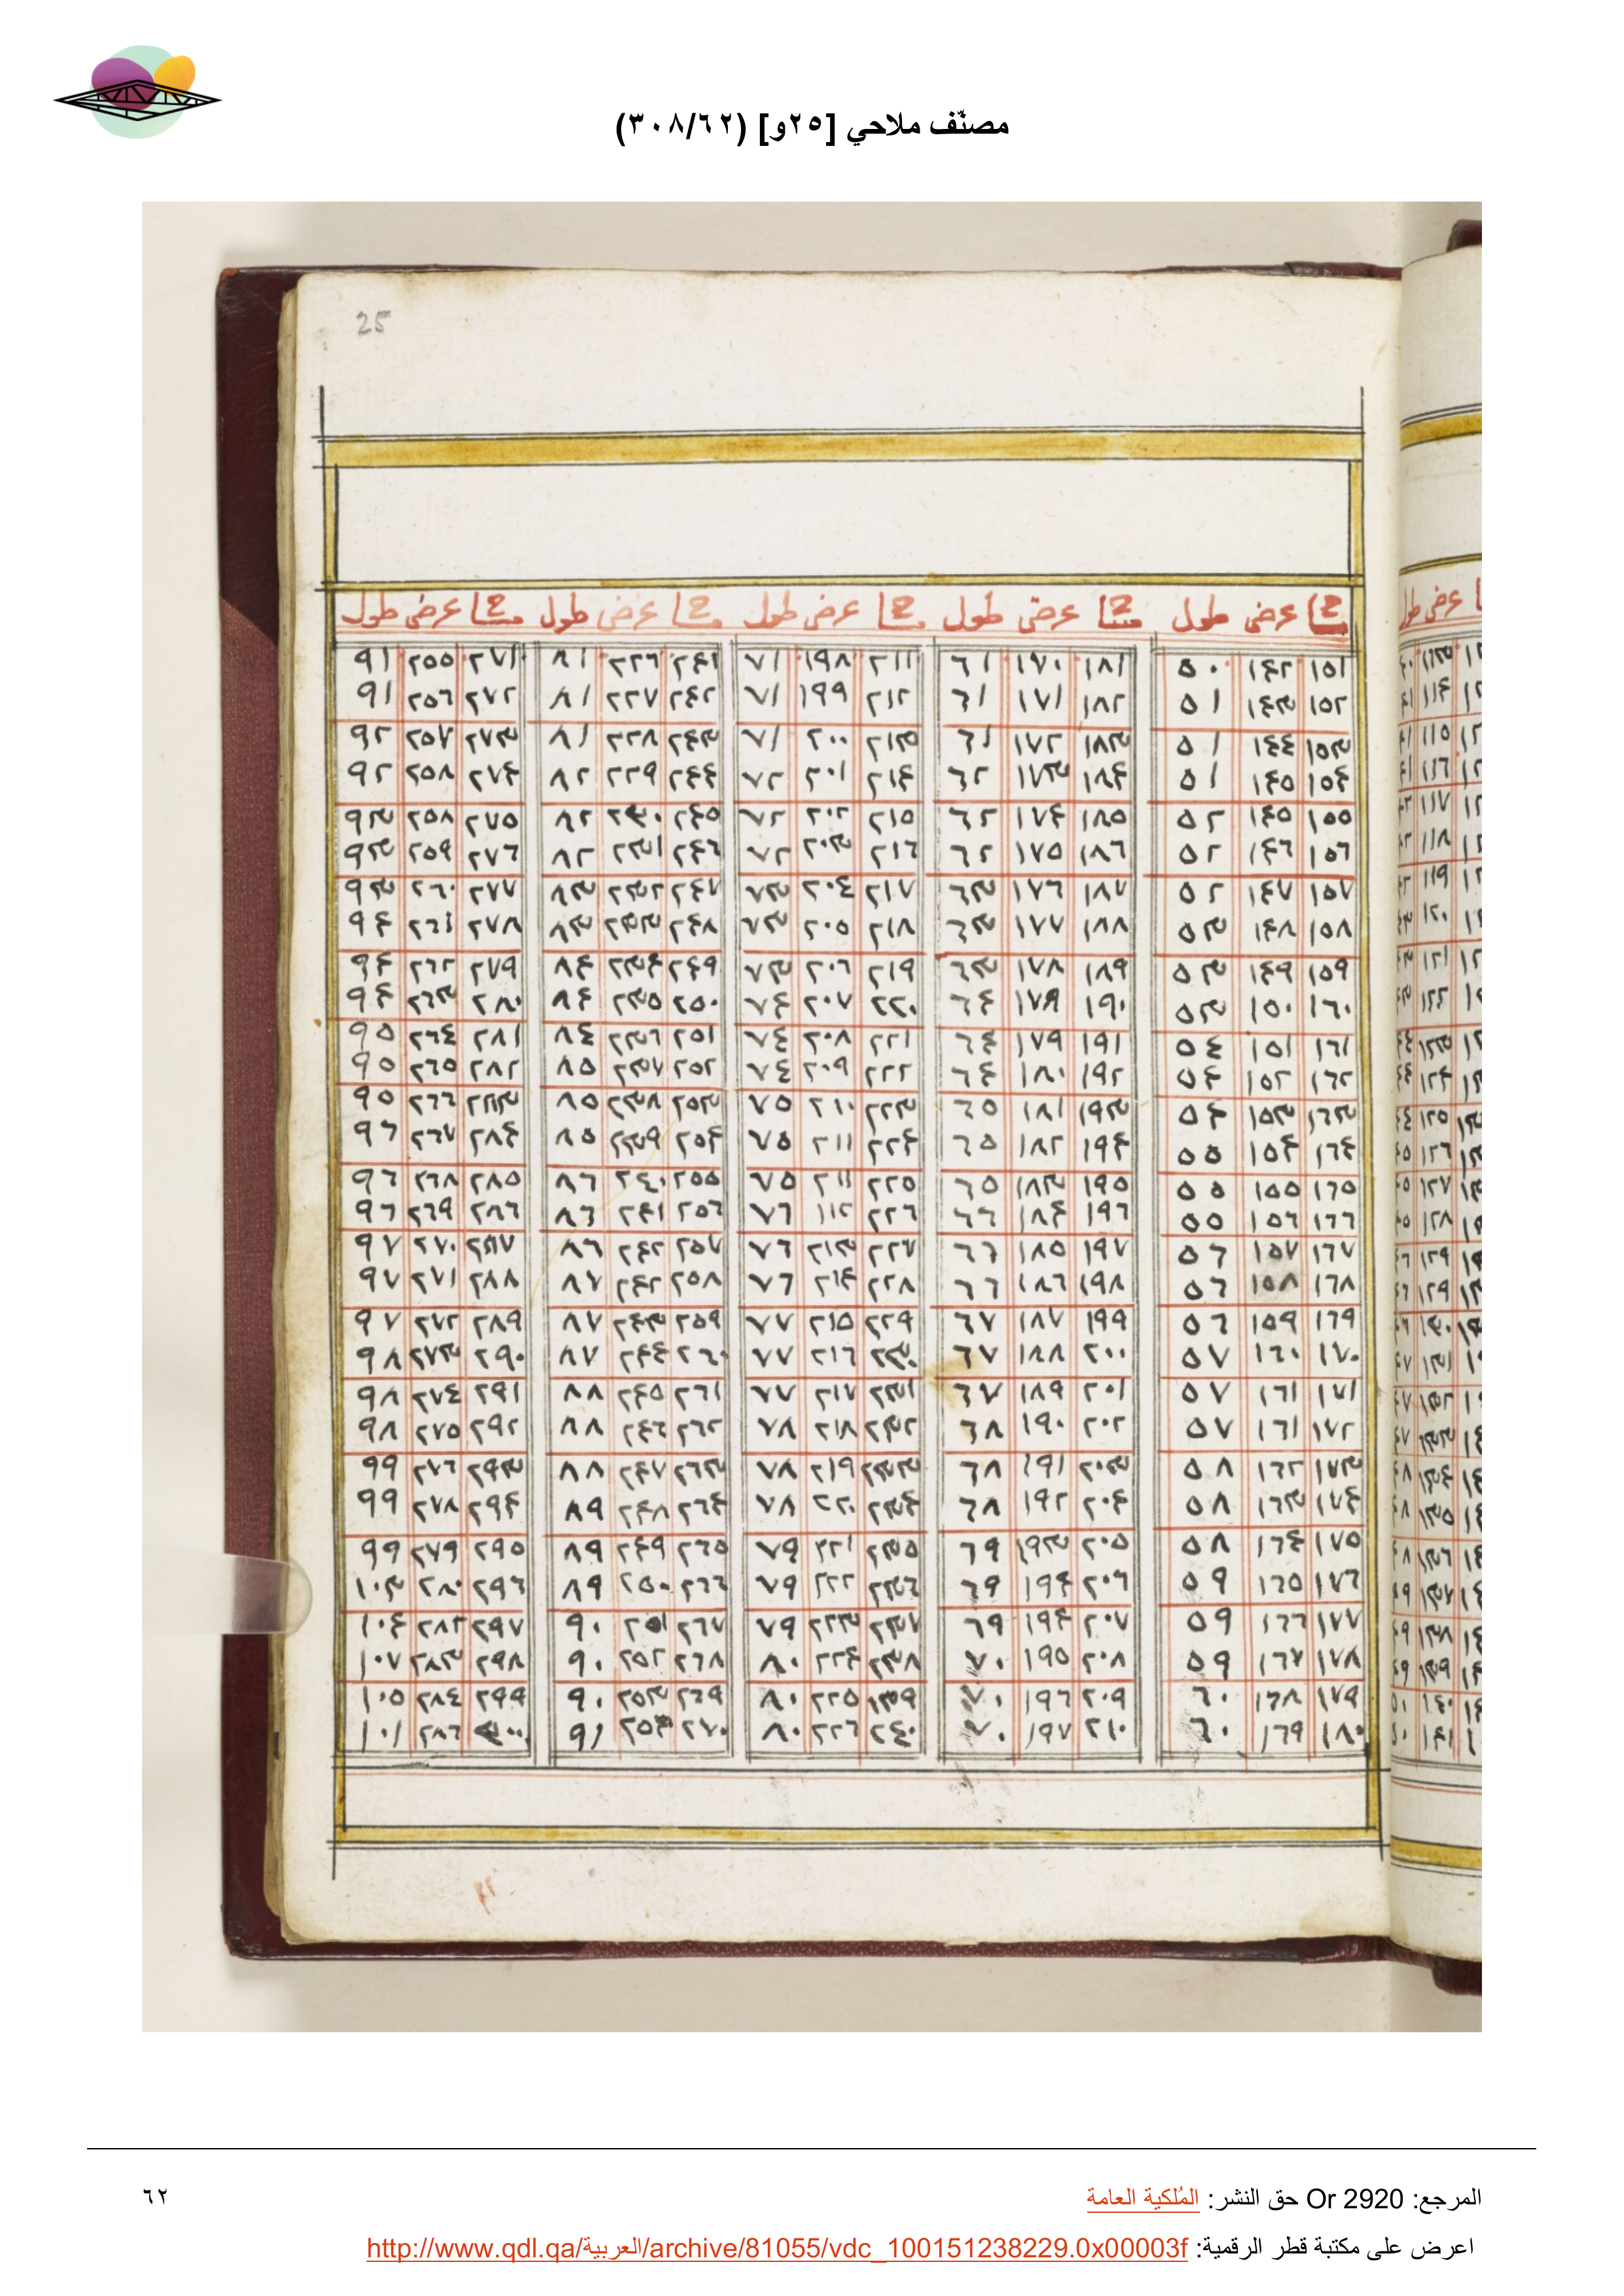 مصنّف ملاحي [٢٥و] (٣٠٨/٦٢)
25
عرض طول عرض طول عرض طول عرض طول عرض طول
١٥١ ١٤٢ ٥٠ ١٨١ ١٧٠ ٦١ ٢١١ ١٩٨ ٧١ ٢٤١ ٢٢٦ ٨١ ٢٧١ ٢٥٥ ٩١
١٥٢ ١٤٣ ٥١ ١٨٢ ١٧١ ٦١ ٢١٢ ١٩٩ ٧١ ٢٤٢ ٢٢٧ ٨١ ٢٧٢ ٢٥٦ ٩١
١٥٣ ١٤٤ ٥١ ١٨٣ ١٧٢ ٦١ ٢١٣ ٢٠٠ ٧١ ٢٤٣ ٢٢٨ ٨١ ٢٧٣ ٢٥٧ ٩٢
١٥٤ ١٤٥ ٥١ ١٨٤ ١٧٣ ٦٢ ٢١٤ ٢٠١ ٧٢ ٢٤٤ ٢٢٩ ٨٢ ٢٧٤ ٢٥٨ ٩٢
١٥٥ ١٤٥ ٥٢ ١٨٥ ١٧٤ ٦٢ ٢١٥ ٢٠٢ ٧٢ ٢٤٥ ٢٣٠ ٨٢ ٢٧٥ ٢٥٨ ٩٣
١٥٦ ١٤٦ ٥٢ ١٨٦ ١٧٥ ٦٢ ٢١٦ ٢٠٣ ٧٢ ٢٤٦ ٢٣١ ٨٢ ٢٧٦ ٢٥٩ ٩٣
١٥٧ ١٤٧ ٥٢ ١٨٧ ١٧٦ ٦٣ ٢١٧ ٢٠٤ ٧٣ ٢٤٧ ٢٣٢ ٨٣ ٢٧٧ ٢٦٠ ٩٣
١٥٨ ١٤٨ ٥٣ ١٨٨ ١٧٧ ٦٣ ٢١٨ ٢٠٥ ٧٣ ٢٤٨ ٢٣٣ ٨٣ ٢٧٨ ٢٦١ ٩٤
١٥٩ ١٤٩ ٥٣ ١٨٩ ١٧٨ ٦٣ ٢١٩ ٢٠٦ ٧٣ ٢٤٩ ٢٣٤ ٨٤ ٢٧٩ ٢٦٢ ٩٤
١٦٠ ١٥٠ ٥٣ ١٩٠ ١٧٩ ٦٤ ٢٢٠ ٢٠٧ ٧٤ ٢٥٠ ٢٣٥ ٨٤ ٢٨٠ ٢٦٣ ٩٤
١٦١ ١٥١ ٥٤ ١٩١ ١٧٩ ٦٤ ٢٢١ ٢٠٨ ٧٤ ٢٥١ ٢٣٦ ٨٤ ٢٨١ ٢٦٤ ٩٥
١٦٢ ١٥٢ ٥٤ ١٩٢ ١٨٠ ٦٤ ٢٢٢ ٢٠٩ ٧٤ ٢٥٢ ٢٣٧ ٨٥ ٢٨٢ ٢٦٥ ٩٥
١٦٣ ١٥٣ ٥٤ ١٩٣ ١٨١ ٦٥ ٢٢٣ ٢١٠ ٧٥ ٢٥٣ ٢٣٨ ٨٥ ٢٨٣ ٢٦٦ ٩٥
١٦٤ ١٥٤ ٥٥ ١٩٤ ١٨٢ ٦٥ ٢٢٤ ٢١١ ٧٥ ٢٥٤ ٢٣٩ ٨٥ ٢٨٤ ٢٦٧ ٩٦
١٦٥ ١٥٥ ٥٥ ١٩٥ ١٨٣ ٦٥ ٢٢٥ ٢١١ ٧٥ ٢٥٥ ٢٤٠ ٨٦ ٢٨٥ ٢٦٨ ٩٦
١٦٦ ١٥٦ ٥٥ ١٩٦ ١٨٤ ٦٦ ٢٢٦ ١١٢ ٧٦ ٢٥٦ ٢٤١ ٨٦ ٢٨٦ ٢٦٩ ٩٦
١٦٧ ١٥٧ ٥٦ ١٩٧ ١٨٥ ٦٦ ٢٢٧ ٢١٣ ٧٦ ٢٥٧ ٢٤٢ ٨٦ ٢٨٧ ٢٧٠ ٩٧
١٦٨ ١٥٨ ٥٦ ١٩٨ ١٨٦ ٦٦ ٢٢٨ ٢١٤ ٧٦ ٢٥٨ ٢٤٢ ٨٧ ٢٨٨ ٢٧١ ٩٧
١٦٩ ١٥٩ ٥٦ ١٩٩ ١٨٧ ٦٧ ٢٢٩ ٢١٥ ٧٧ ٢٥٩ ٢٤٣ ٨٧ ٢٨٩ ٢٧٢ ٩٧
١٧٠ ١٦٠ ٥٧ ٢٠٠ ١٨٨ ٦٧ ٢٣٠ ٢١٦ ٧٧ ٢٦٠ ٢٤٤ ٨٧ ٢٩٠ ٢٧٣ ٩٨
١٧١ ١٦١ ٥٧ ٢٠١ ١٨٩ ٦٧ ٢٣١ ٢١٧ ٧٧ ٢٦١ ٢٤٥ ٨٨ ٢٩١ ٢٧٤ ٩٨
١٧٢ ١٦١ ٥٧ ٢٠٢ ١٩٠ ٦٨ ٢٣٢ ٢١٨ ٧٨ ٢٦٢ ٢٤٦ ٨٨ ٢٩٢ ٢٧٥ ٩٨
١٧٣ ١٦٢ ٥٨ ٢٠٣ ١٩١ ٦٨ ٢٣٣ ٢١٩ ٧٨ ٢٦٣ ٢٤٧ ٨٨ ٢٩٣ ٢٧٦ ٩٩
١٧٤ ١٦٣ ٥٨ ٢٠٤ ١٩٢ ٦٨ ٢٣٤ ٢٢٠ ٧٨ ٢٦٤ ٢٤٨ ٨٩ ٢٩٤ ٢٧٨ ٩٩
١٧٥ ١٦٤ ٥٨ ٢٠٥ ١٩٣ ٦٩ ٢٣٥ ٢٢١ ٧٩ ٢٦٥ ٢٤٩ ٨٩ ٢٩٥ ٢٧٩ ٩٩
١٧٦ ١٦٥ ٥٩ ٢٠٦ ١٩٤ ٦٩ ٢٣٦ ٢٢٢ ٧٩ ٢٦٦ ٢٥٠ ٨٩ ٢٩٦ ٢٨٠ ١٠٣
١٧٧ ١٦٦ ٥٩ ٢٠٧ ١٩٤ ٦٩ ٢٣٧ ٢٢٣ ٧٩ ٢٦٧ ٢٥١ ٩٠ ٢٩٧ ٢٨٢ ١٠٤
١٧٨ ١٦٧ ٥٩ ٢٠٨ ١٩٥ ٧٠ ٢٣٨ ٢٢٤ ٨٠ ٢٦٨ ٢٥٢ ٩٠ ٢٩٨ ٢٨٣ ١٠٧
١٧٩ ١٦٨ ٦٠ ٢٠٩ ١٩٦ ٧٠ ١٣٩ ٢٢٥ ٨٠ ٢٦٩ ٢٥٣ ٩٠ ٢٩٩ ٢٨٤ ١٠٥
١٨٠ ١٦٩ ٦٠ ٢١٠ ١٩٧ ٧٠ ٢٤٠ ٢٢٦ ٨٠ ٢٧٠ ٢٥٤ ٩١ ٣٠٠ ٢٨٦ ١٠١
المرجع: Or 2920 حق النشر: المُلكية العامة
٦٢
اعرض على مكتبة قطر الرقمية: http://www.qdl.qa/العربية/archive/81055/vdc_100151238229.0x00003f